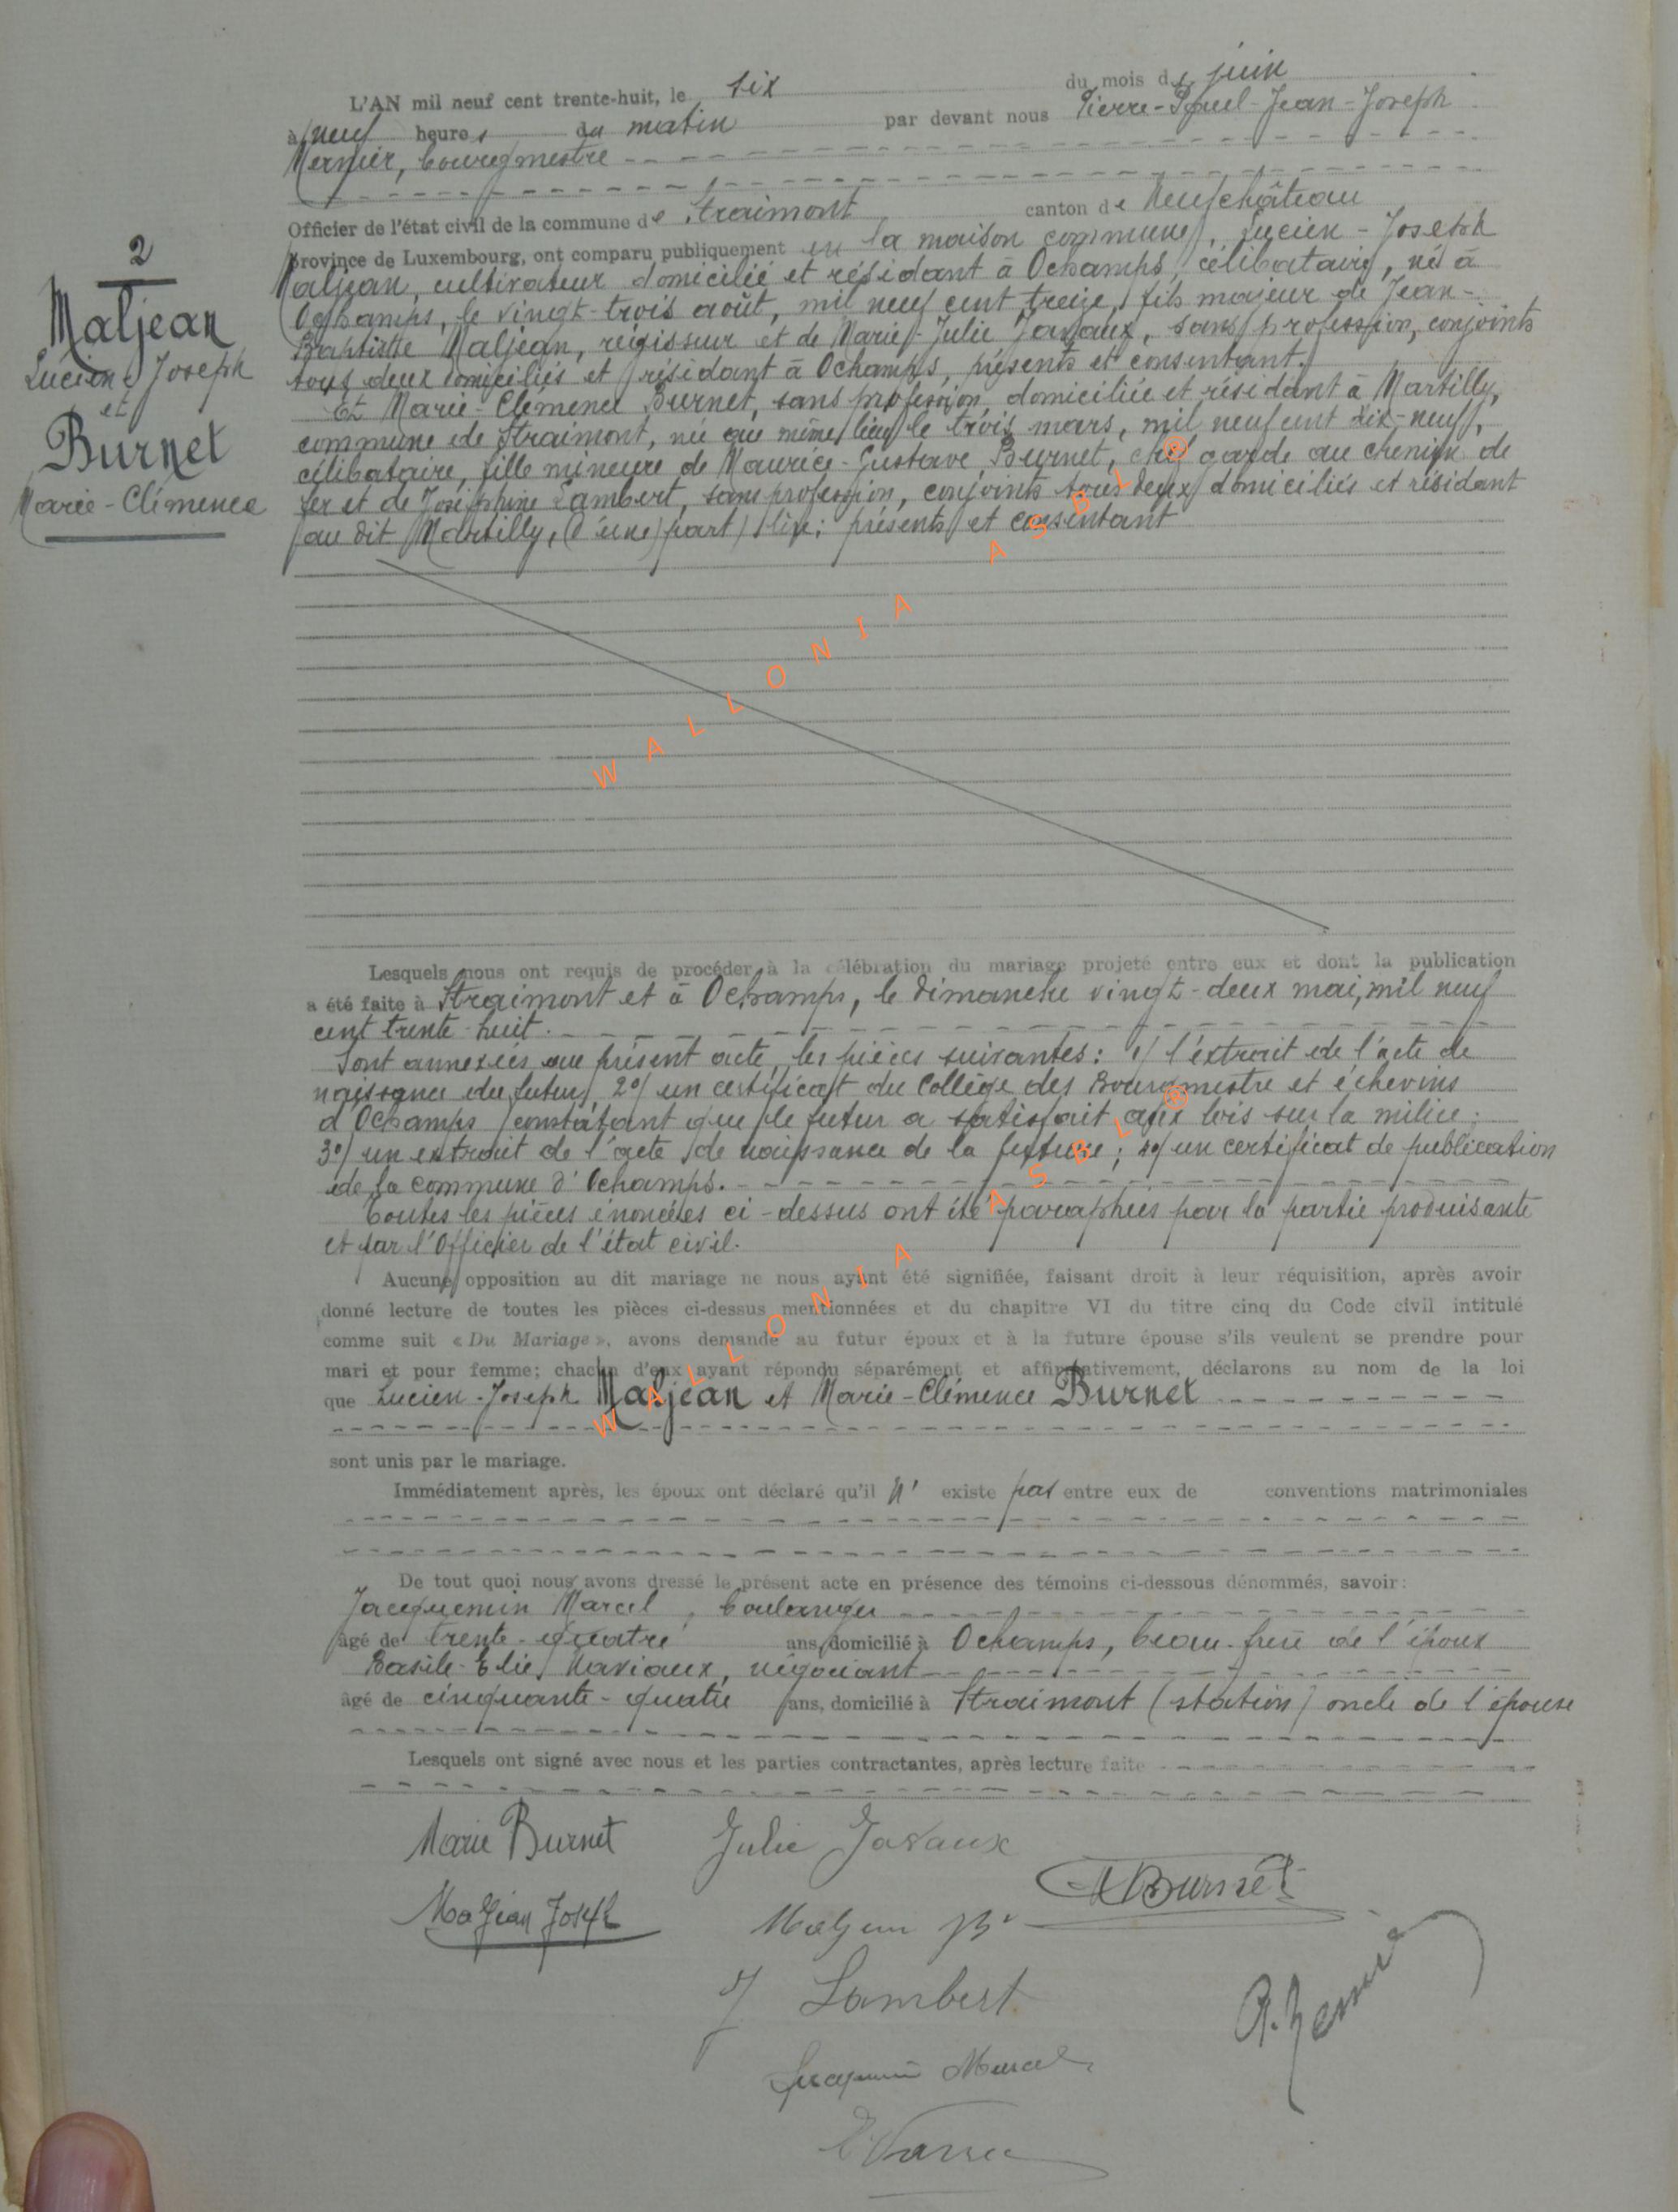 L'AN mil neuf cent trente-huit, le six du mois de juin
à neuf heures du matin par devant nous Pierre-Paul-Jean-Joseph
Mernier, bourgmestre
Officier de l'état civil de la commune de Straimont canton de Neufchâteau
province de Luxembourg, ont comparu publiquement en la maison commune, Lucien-Joseph
Maljean, cultivateur domicilié et résidant à Ochamps, célibataire, né à
Ochamps, le vingt-trois août, mil neuf cent treize, fils majeur de Jean-
Baptiste Maljean, régisseur et de Marie-Julie Javaux, sans profession, conjoints
tous deux domiciliés et résidant à Ochamps, présents et consentant.
Et Marie-Clémence Burnet, sans profession, domiciliée et résidant à Martilly,
commune de Straimont, née au même lieu le trois mars, mil neuf cent dix-neuf,
célibataire, fille mineure de Maurice-Gustave Burnet, chef garde au chemin de
fer et de Joséphine Lambert, sans profession, conjoints tous deux domiciliés et résidant
au dit Martilly, (d'une part) lire: présents et consentant
2
Maljean
Lucien-Joseph
et
Burnet
Marie-Clémence
WALLONIA ASBL ®
Lesquels nous ont requis de procéder à la célébration du mariage projeté entre eux et dont la publication
a été faite à Straimont et à Ochamps, le dimanche vingt-deux mai, mil neuf
cent trente-huit.
Sont annexées au présent acte, les pièces suivantes: 1/ l'extrait de l'acte de
naissance du futur, 2°/ un certificat du Collège des Bourgmestre et échevins
d'Ochamps constatant que le futur a satisfait aux lois sur la milice;
3°/ un extrait de l'acte de naissance de la future; 4°/ un certificat de publication
de la commune d'Ochamps.
Toutes les pièces énoncées ci-dessus ont été paraphées par la partie produisante
et par l'Officier de l'état civil.
Aucune opposition au dit mariage ne nous ayant été signifiée, faisant droit à leur réquisition, après avoir
donné lecture de toutes les pièces ci-dessus mentionnées et du chapitre VI du titre cinq du Code civil intitulé
comme suit « Du Mariage », avons demandé au futur époux et à la future épouse s'ils veulent se prendre pour
mari et pour femme; chacun d'eux ayant répondu séparément et affirmativement, déclarons au nom de la loi
que Lucien-Joseph Maljean et Marie-Clémence Burnet
WALLONIA ASBL ®
sont unis par le mariage.
Immédiatement après, les époux ont déclaré qu'il n'existe pas entre eux de conventions matrimoniales
De tout quoi nous avons dressé le présent acte en présence des témoins ci-dessous dénommés, savoir:
Jacquemin Marcel, boulanger
âgé de trente-quatre ans, domicilié à Ochamps, beau-frère de l'époux
Basile-Elie, négociant
âgé de cinquante-quatre ans, domicilié à Straimont (station) oncle de l'épouse
Lesquels ont signé avec nous et les parties contractantes, après lecture faite
Marie Burnet Julie Javaux
Burnet
Maljean Joseph Maljean JBte
J Lambert
Jacquemin Marcel